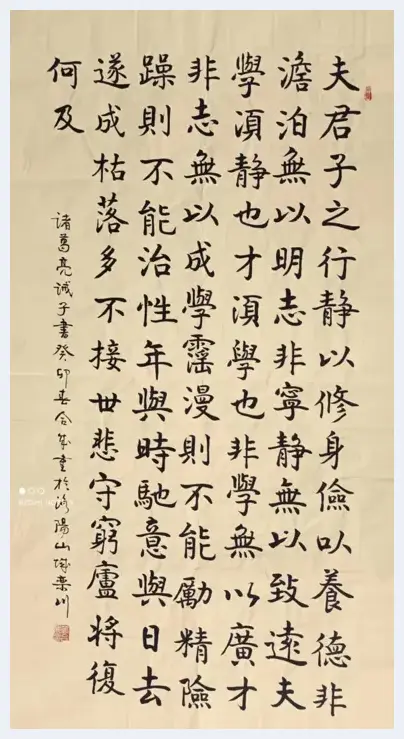 夫君子之行静以修身儉以養德非
澹泊無以明志非寧静無以致遠夫
學湏静也才湏學也非學無以廣才
非志無以成學霪漫則不能勵精險
躁則不能治性年與時馳意與日去
遂成枯落多不接世悲守窮廬將復
何及
諸葛亮诫子書癸卯春合於洛陽山城栾川